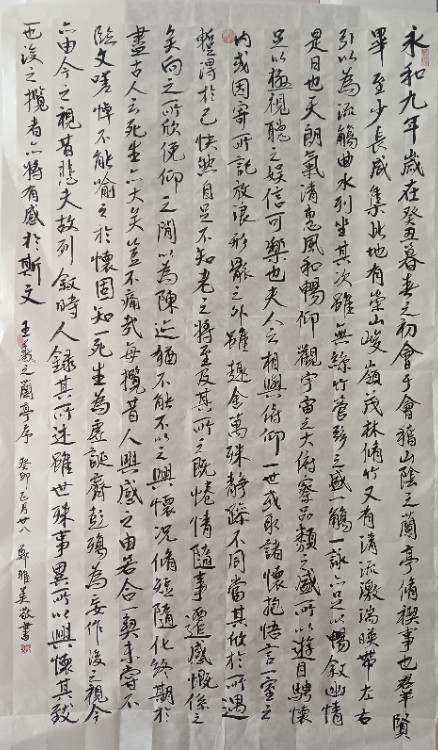 永和九年歲在癸丑暮春之初會于會稽山陰之蘭亭脩稧事也羣賢
畢至少長咸集此地有崇山峻嶺茂林脩竹又有清流激湍暎帶左右
引以為流觴曲水列坐其次雖無絲竹管弦之盛一觴一詠亦足以暢敘幽情
是日也天朗氣清惠風和暢仰觀宇宙之大俯察品類之盛所以遊目騁懷
足以極視聽之娛信可樂也夫人之相與俯仰一世或取諸懷抱悟言一室之
內或因寄所託放浪形骸之外雖趣舍萬殊靜躁不同當其欣於所遇
蹔得於己快然自足不知老之將至及其所之既惓情隨事遷感慨係之
矣向之所欣俛仰之閒以為陳迹猶不能不以之興懷況脩短隨化終期於
盡古人云死生亦大矣豈不痛哉每攬昔人興感之由若合一契未嘗不
臨文嗟悼不能喻之於懷固知一死生為虛誕齊彭殤為妄作後之視今
亦由今之視昔悲夫故列敘時人錄其所述雖世殊事異所以興懷其致
一也後之攬者亦將有感於斯文
王羲之蘭亭序 癸卯正月廿八 鄭雅美敬書